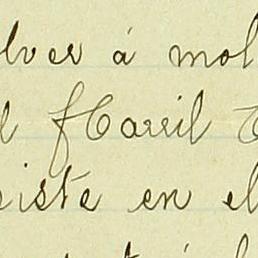 lver á mol
l fCarril
iste en el